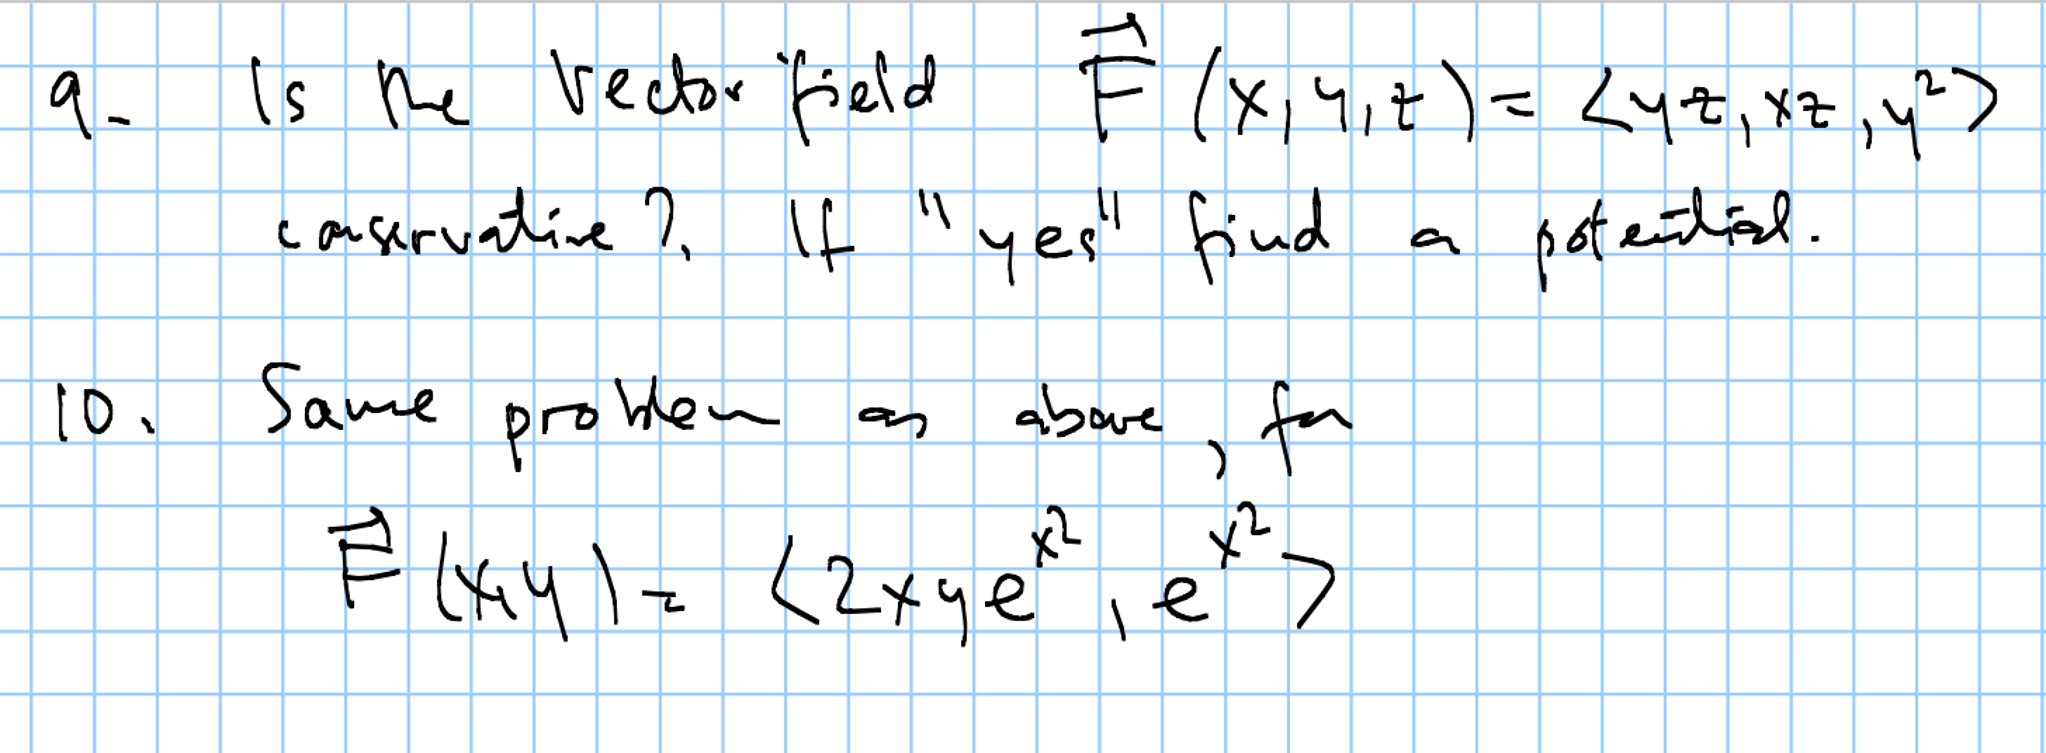 9. Is the vector field F⃗(x,y,z) = <yz, xz, y²>
conservative?. If "yes" find a potential.
10. Same problem as above, for
F⃗(x,y) = <2xye^x², e^x²>